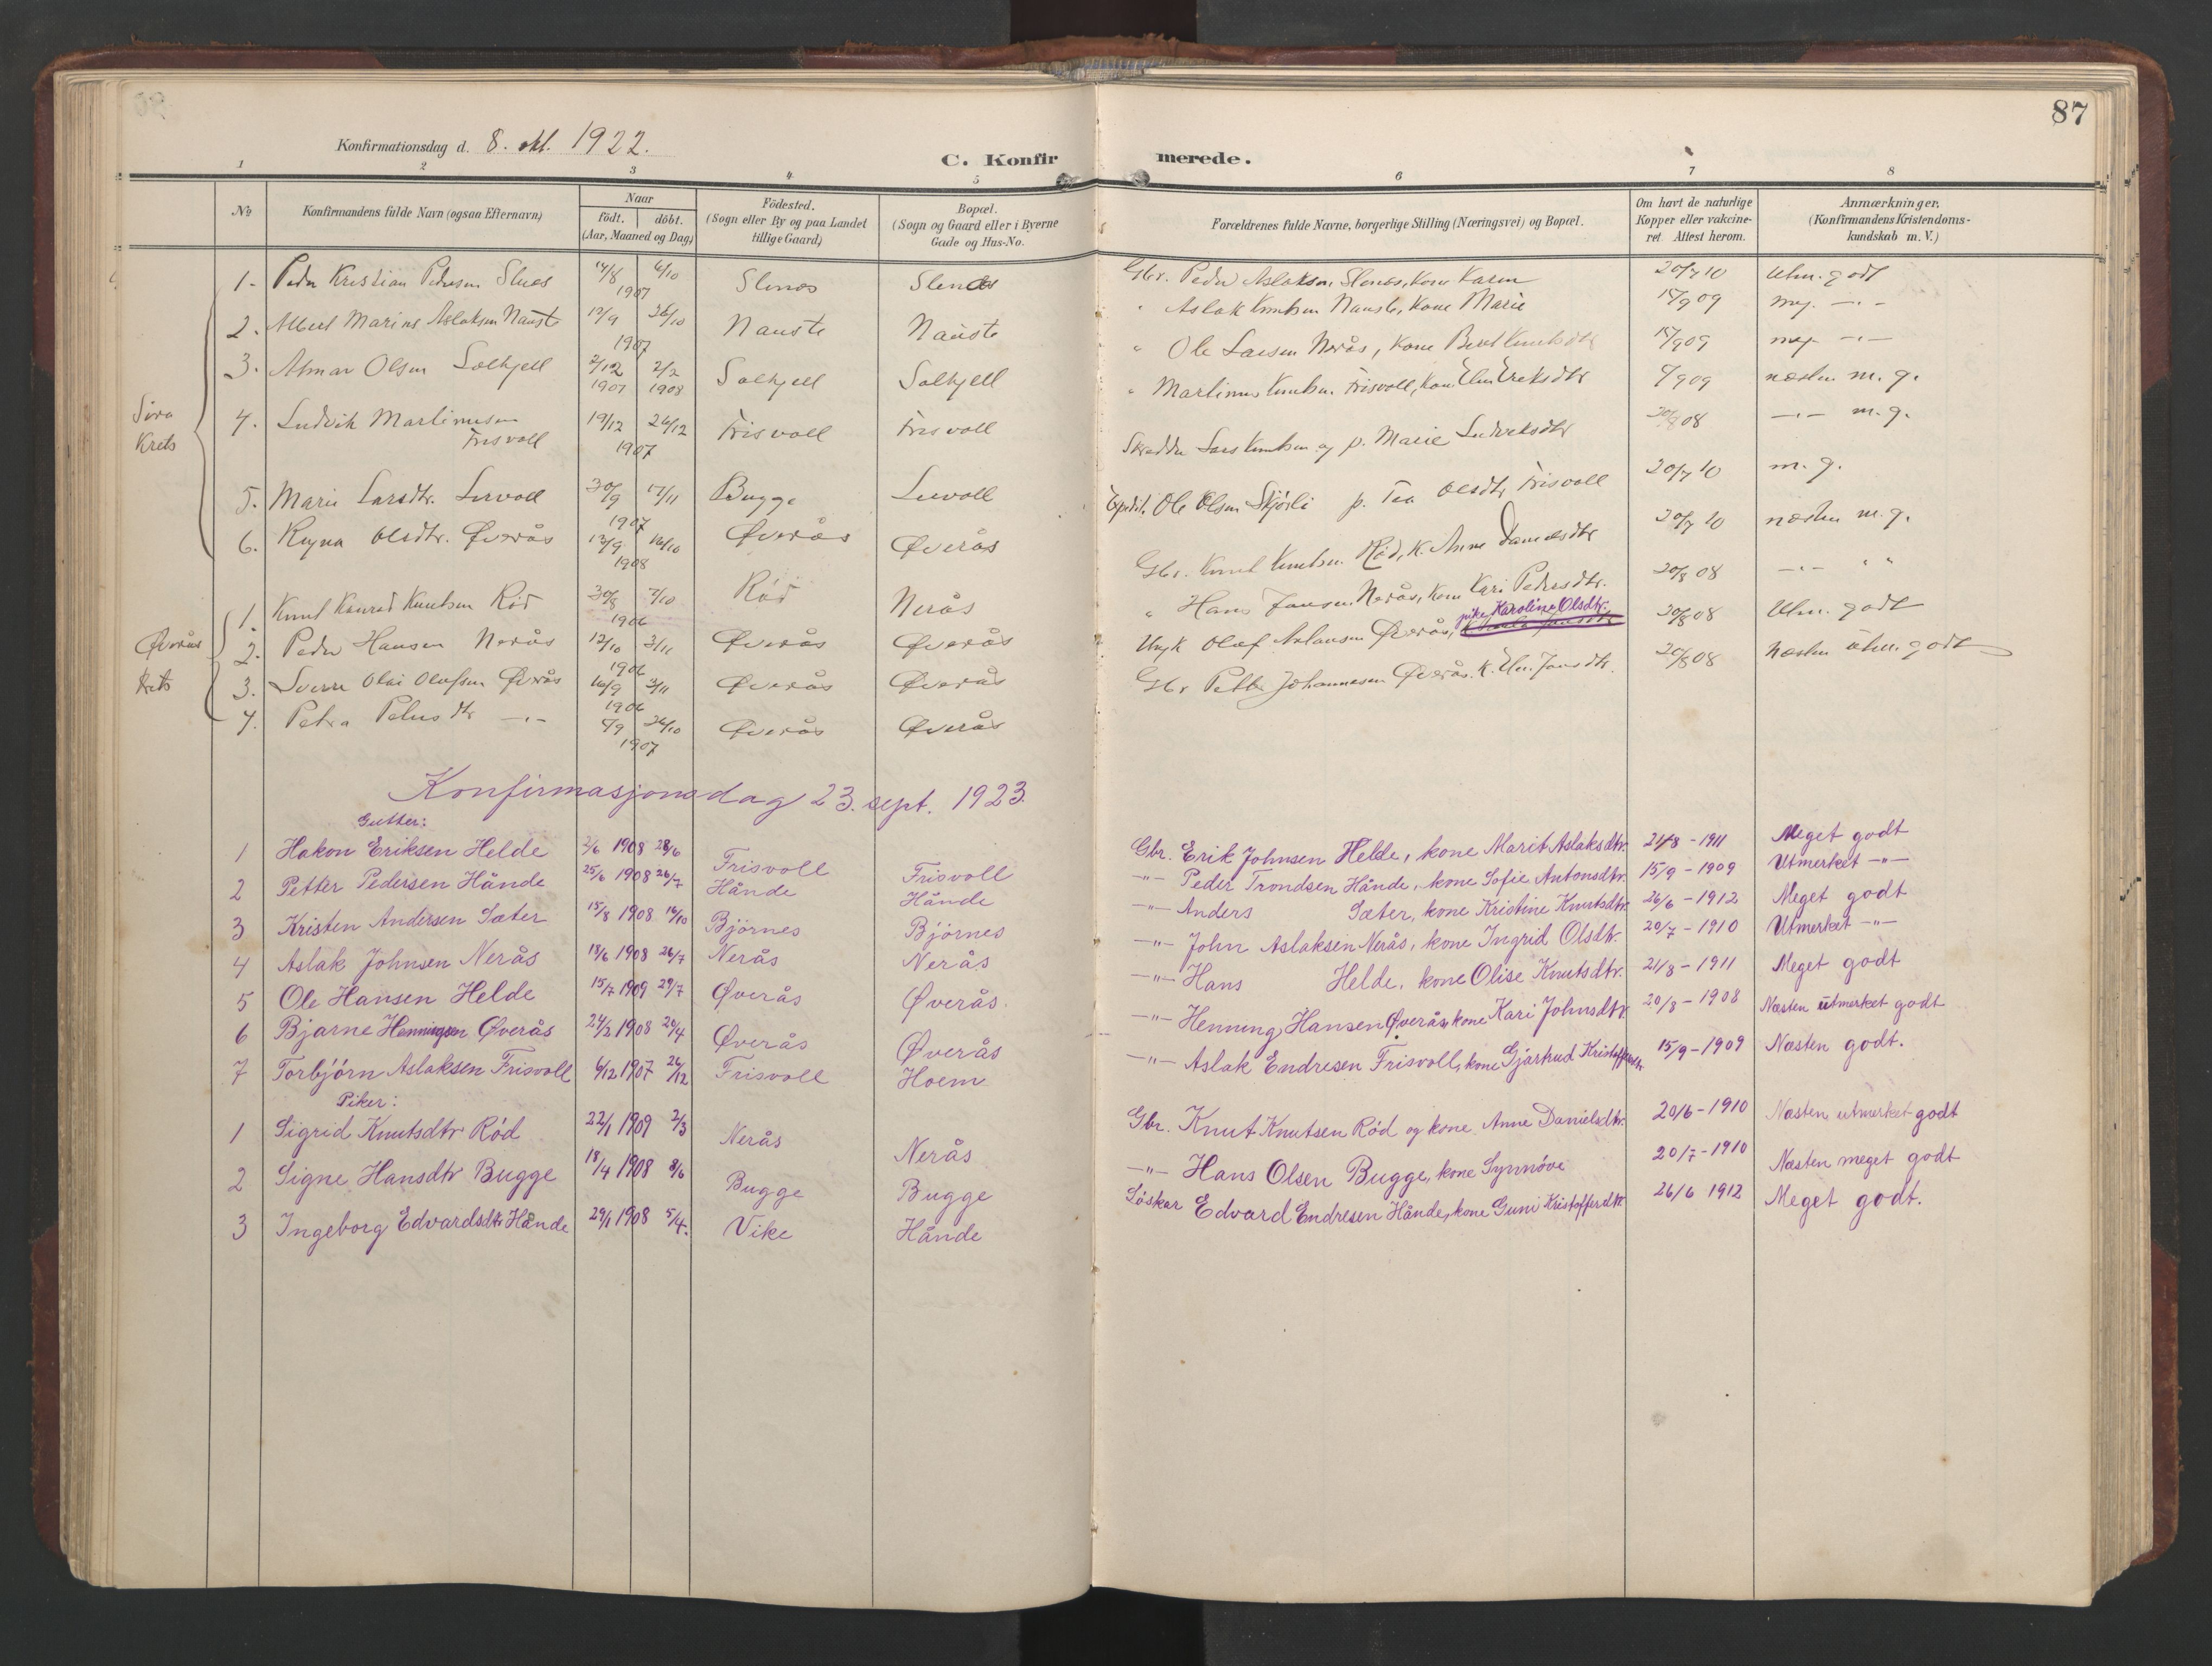 87
Konfirmationsdag d. 8. okt. 1922.
C. Konfirmerede.
1 2 3 4 5 6 7 8
No
Konfirmandens fulde Navn (ogsaa Efternavn)
Naar
födt. döbt.
(Aar, Maaned og Dag)
Födested.
(Sogn eller By og paa Landet
tillige Gaard)
Bopæl.
(Sogn og Gaard eller i Byerne
Gade og Hus-No.
Forældrenes fulde Navne, borgerlige Stilling (Næringsvei) og Bopæl.
Om havt de naturlige
Kopper eller vakcine-
ret. Attest herom.
Anmærkninger.
(Konfirmandens Kristendoms-
kundskab m. V.)
Sira
Krets
1. Peder Kristian Pedersen Slenes 14/8 6/10 1907 Slenes Slenes Gbr. Peder Aslaksen Slenes, kone Karen 20/7 10 Utm. godt
2. Albert Marius Aslaksen Nauste 12/9 26/10 1907 Nauste Nauste " Aslak Knutsen Nauste, kone Marie 15/9 09 meg. -"-
3. Almar Olsen Solhjell 2/12 1907 2/2 1908 Solhjell Solhjell " Ole Larsen Nerås, kone Berit Knutsdtr 15/9 09 meg. -"-
4. Ludvik Martinusen Frisvoll 19/12 26/12 1907 Frisvoll Frisvoll " Martinus Knutsen Frisvoll, kone Elen Eriksdtr 9/9 09 næsten m. g.
5. Marie Larsdtr. Lervoll 30/9 17/11 1907 Bugge Lervoll Skredder Lars Knutsen og p. Marie Ludviksdtr 20/8 08 -"- m. g.
6. Ragna Olsdtr. Øverås 13/9 16/10 1908 Øverås Øverås Expedit. Ole Olsen Skjørli p. Tea Olsdtr Frisvoll 20/7 10 m. g.
Øverås
Krets
1. Knut Konrad Knutsen Rød 30/8 7/10 1906 Rød Nerås Gbr. Knut Knutsen Rød, k. Anne Danielsdtr 20/7 10 næsten m. g.
2. Peder Hansen Nerås 12/10 3/11 1906 Øverås Øverås " Hans Jensen Nerås, kone Kari Pedersdtr. 20/8 08 -"- " "
3. Sverre Olai Olafsen Øverås 16/9 3/11 1906 Øverås Øverås Ungk Olaf Øverås, pike Karoline Olsdtr. 20/8 08 Utm. godt
4. Petra Petersdtr -"- 8/9 26/10 1907 Øverås Øverås Gbr Petter Johannesen Øverås. k. Elen Jonsdtr. 20/8 08 Næsten utm. godt
Konfirmasjonsdag 23. sept. 1923.
Gutter:
1 Hakon Eriksen Helde 2/6 1908 28/6 Frisvoll Frisvoll Gbr. Erik Johnsen Helde, kone Marit Aslaksdtr. 21/8 - 1911 Meget godt
2 Petter Pedersen Hånde 25/6 1908 26/7 Hånde Hånde -"- Peder Trondsen Hånde, kone Sofie Antonsdtr. 15/9 - 1909 Utmerket -"-
3 Kristen Andersen Sæter 15/8 1908 16/10 Björnes Björnes -"- Anders Sæter, kone Kristine Knutsdtr. 26/6 - 1912 Meget godt
4 Aslak Johnsen Nerås 18/6 1908 26/7 Nerås Nerås -"- John Aslaksen Nerås, kone Ingrid Olsdtr. 20/7 - 1910 Utmerket -"-
5 Ole Hansen Helde 15/7 1909 29/7 Øverås Øverås. -"- Hans Helde, kone Olise Knutsdtr. 21/8 - 1911 Meget godt
6 Bjarne Henningsen Øverås 24/2 1908 20/4 Øverås Øverås -"- Henning Hansen Øverås, kone Kari Johnsdtr. 20/8 - 1908 Næsten utmerket godt
7 Torbjörn Aslaksen Frisvoll 6/12 1907 26/12 Frisvoll Hoem -"- Aslak Endresen Frisvoll, kone Gjartrud Kristoffersdtr. 15/9 - 1909 Næsten godt.
Piker:
1 Sigrid Knutsdtr Rød 22/1 1909 2/3 Nerås Nerås Gbr. Knut Knutsen Rød og kone Anne Danielsdtr. 20/6 - 1910 Næsten utmerket godt
2 Signe Hansdtr Bugge 18/4 1908 8/6 Bugge Bugge -"- Hans Olsen Bugge, kone Synnöve 20/7 - 1910 Næsten meget godt
3 Ingeborg Edvardsdtr Hånde 29/1 1908 5/4. Vike Hånde Löskar Edvard Endresen Hånde, kone Guni Kristoffersdtr. 26/6 1912 Meget godt.